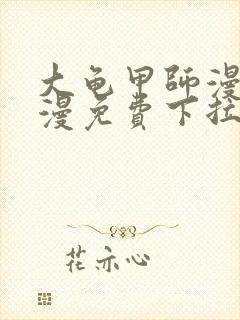 大龟甲師漫
漫免費下拉
花亦心